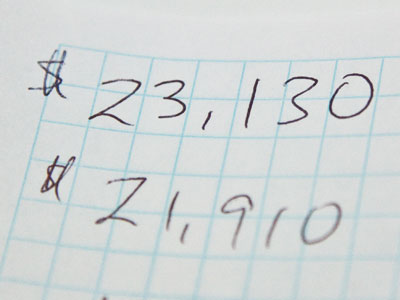 $ 23,130
$ 21,910